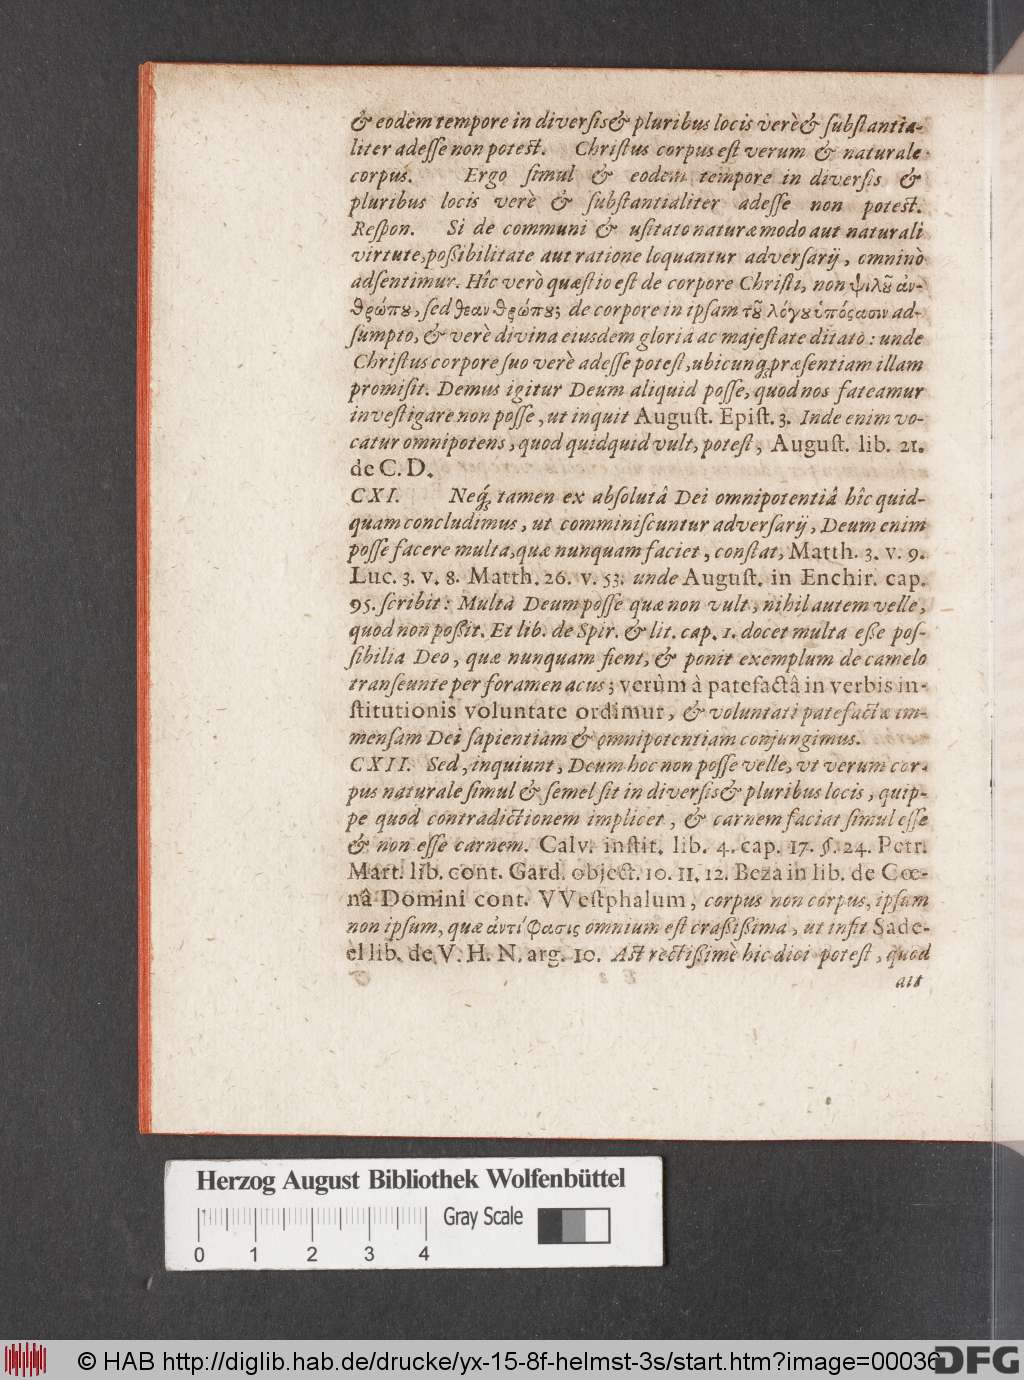 & eodem tempore in diversis & pluribus locis verè & substantia-
liter adesse non potest. Christus corpus est verum & naturale
corpus. Ergo simul & eodem tempore in diversis &
pluribus locis verè & substantialiter adesse non potest.
Respon. Si de communi & usitato naturæ modo aut naturali
virtute, possibilitate aut ratione loquantur adversarij, omninò
adsentimur. Hîc verò quæstio est de corpore Christi, non ψιλοῦ ἀν-
θρώπου, sed θεανθρώπου; de corpore in ipsam τοῦ λόγου ὑπόστασιν ad-
sumpto, & verè divina eiusdem gloria ac majestate ditato: unde
Christus corpore suo verè adesse potest, ubicunq; præsentiam illam
promisit. Demus igitur Deum aliquid posse, quod nos fateamur
investigare non posse, ut inquit August. Epist. 3. Inde enim vo-
catur omnipotens, quod quidquid vult, potest, August. lib. 21.
de C. D.
CXI. Neq; tamen ex absolutâ Dei omnipotentiâ hîc quid-
quam concludimus, ut comminiscuntur adversarij, Deum enim
posse facere multa, quæ nunquam faciet, constat, Matth. 3. v. 9.
Luc. 3. v. 8. Matth. 26. v. 53. unde August. in Enchir. cap.
95. scribit: Multa Deum posse quæ non vult, nihil autem velle,
quod non possit. Et lib. de Spir. & lit. cap. 1. docet multa esse pos-
sibilia Deo, quæ nunquam fient, & ponit exemplum de camelo
transeunte per foramen acus; verùm à patefactâ in verbis in-
stitutionis voluntate ordimur, & voluntati patefactæ im-
mensam Dei sapientiam & omnipotentiam conjungimus.
CXII. Sed, inquiunt, Deum hoc non posse velle, ut verum cor-
pus naturale simul & semel sit in diversis & pluribus locis, quip-
pe quod contradictionem implicet, & carnem faciat simul esse
& non esse carnem. Calv. instit. lib. 4. cap. 17. §. 24. Petr.
Mart. lib. cont. Gard. object. 10. 11. 12. Beza in lib. de Cœ-
nâ Domini cont. VVestphalum, corpus non corpus, ipsum
non ipsum, quæ ἀντίφασις omnium est crassissima, ut infit Sade-
el lib. de V. H. N. arg. 10. Ast rectissimè hic dici potest, quod
ait
Herzog August Bibliothek Wolfenbüttel
Gray Scale
0 1 2 3 4
© HAB http://diglib.hab.de/drucke/yx-15-8f-helmst-3s/start.htm?image=00036
DFG